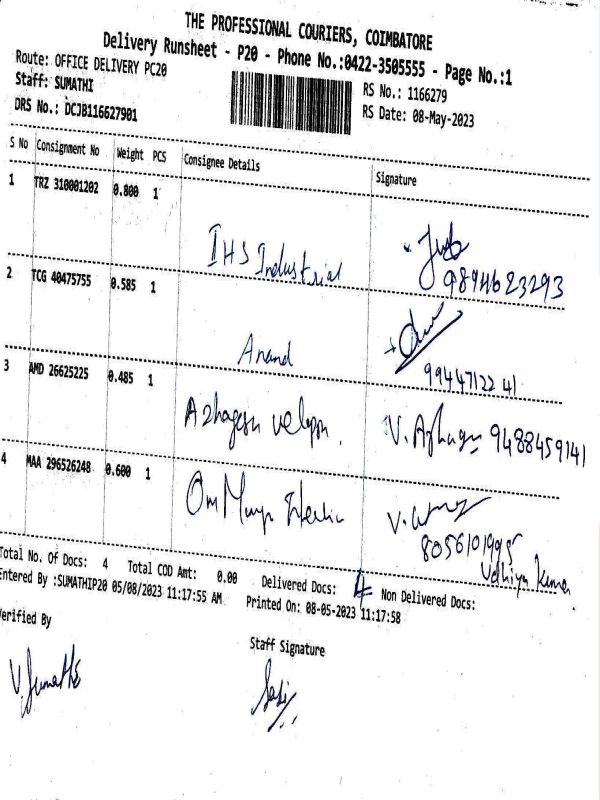 THE PROFESSIONAL COURIERS, COIMBATORE
Delivery Runsheet - P20 - Phone No.:0422-3505555 - Page No.:1
Route: OFFICE DELIVERY PC20
Staff: SUMATHI
DRS No.: DCJB116627901
RS No.: 1166279
RS Date: 08-May-2023
S No Consignment No Weight PCS Consignee Details Signature
1 TRZ 310001202 0.800 1
IHS Industrial 9894623293
2 TCG 40475755 0.585 1
Anand
9944712241
3 AMD 26625225 0.485 1
V. Azhagu 9488459141
4 MAA 296526248 0.600 1
Om
8056101995
Udhiya Kumar
Total No. Of Docs: 4 Total COD Amt: 0.00 Delivered Docs: 4 Non Delivered Docs:
Entered By :SUMATHIP20 05/08/2023 11:17:55 AM Printed On: 08-05-2023 11:17:58
Verified By
Staff Signature
V. Sumathi